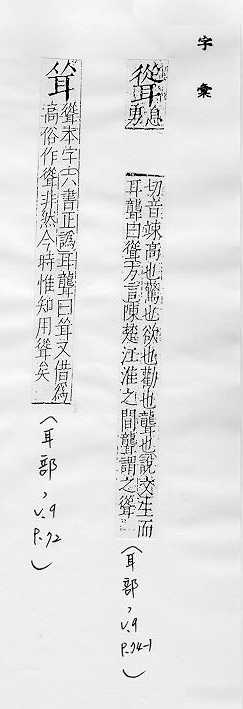 字彙
聳 息勇
切音竦高也驚也欲也勸也聾也說文生而
耳聾曰聳方言陳楚江淮之間聾謂之聳
(耳部, v.9 P.74-1)
耸
聳本字六書正譌耳聾曰耸又借為
高俗作聳非然今時惟知用聳矣
(耳部, v.9 P.72)